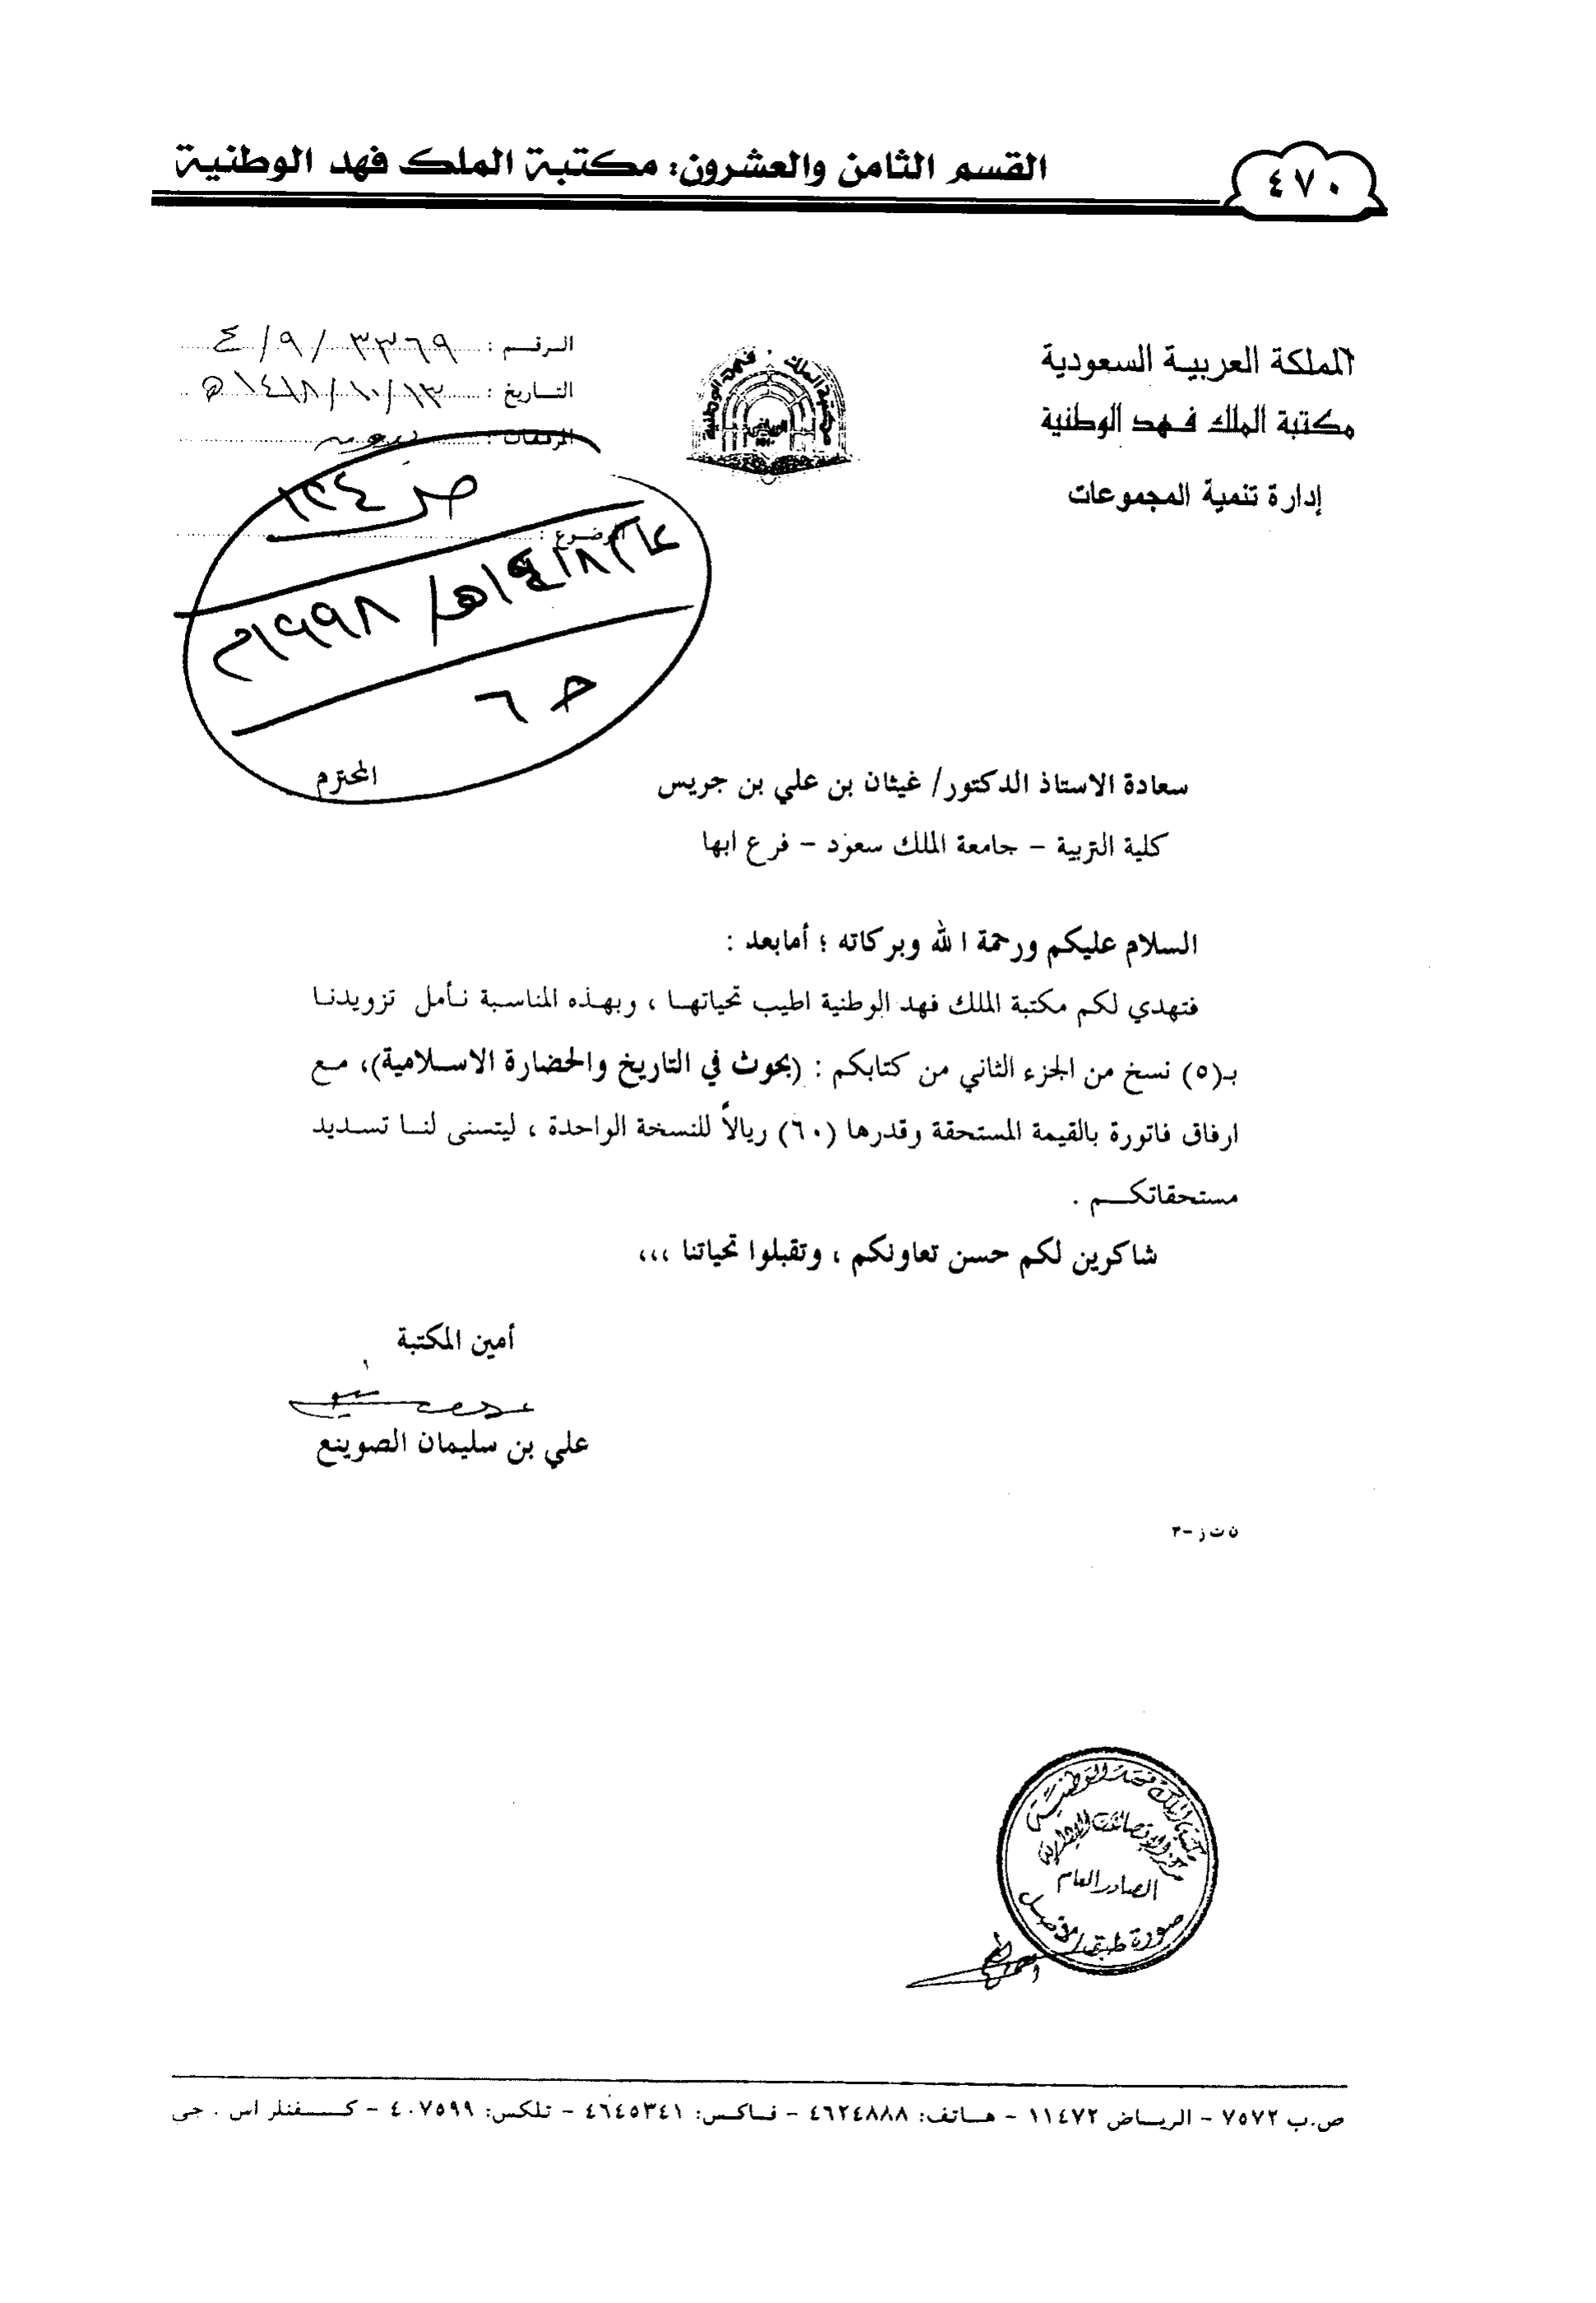 القسم الثامن والعشرون: مكتبة الملك فهد الوطنية
٤٧٠
المملكة العربية السعودية
مكتبة الملك فهد الوطنية
إدارة تنمية المجموعات
الرقم : ٣٣٦٩ / ٩ / ٤
التاريخ : ١٣/ ١٠/ ١٤١٨ هـ
المرفقات :
الموضوع :
ص ١٣٤
عام ١٤١٨هـ / ١٩٩٨م
ج ٦
سعادة الاستاذ الدكتور/ غيثان بن علي بن جريس المحترم
كلية التربية – جامعة الملك سعود – فرع ابها
السلام عليكم ورحمة الله وبركاته ؛ أمابعد :
فتهدي لكم مكتبة الملك فهد الوطنية اطيب تحياتها ، وبهذه المناسبة نأمل تزويدنا
بـ(٥) نسخ من الجزء الثاني من كتابكم : (بحوث في التاريخ والحضارة الاسلامية)، مع
ارفاق فاتورة بالقيمة المستحقة وقدرها (٦٠) ريالاً للنسخة الواحدة ، ليتسنى لنا تسديد
مستحقاتكم .
شاكرين لكم حسن تعاونكم ، وتقبلوا تحياتنا ،،،
أمين المكتبة
علي بن سليمان الصوينع
ن ت ز -٣
مكتبة الملك فهد الوطنية
مركز الاتصالات الإدارية
الصادر العام
صورة طبق الأصل
ص.ب ٧٥٧٢ - الرياض ١١٤٧٢ - هاتف: ٤٦٢٤٨٨٨ - فاكس: ٤٦٤٥٣٤١ - تلكس: ٤٠٧٥٩٩ - كفنلر اس . جي